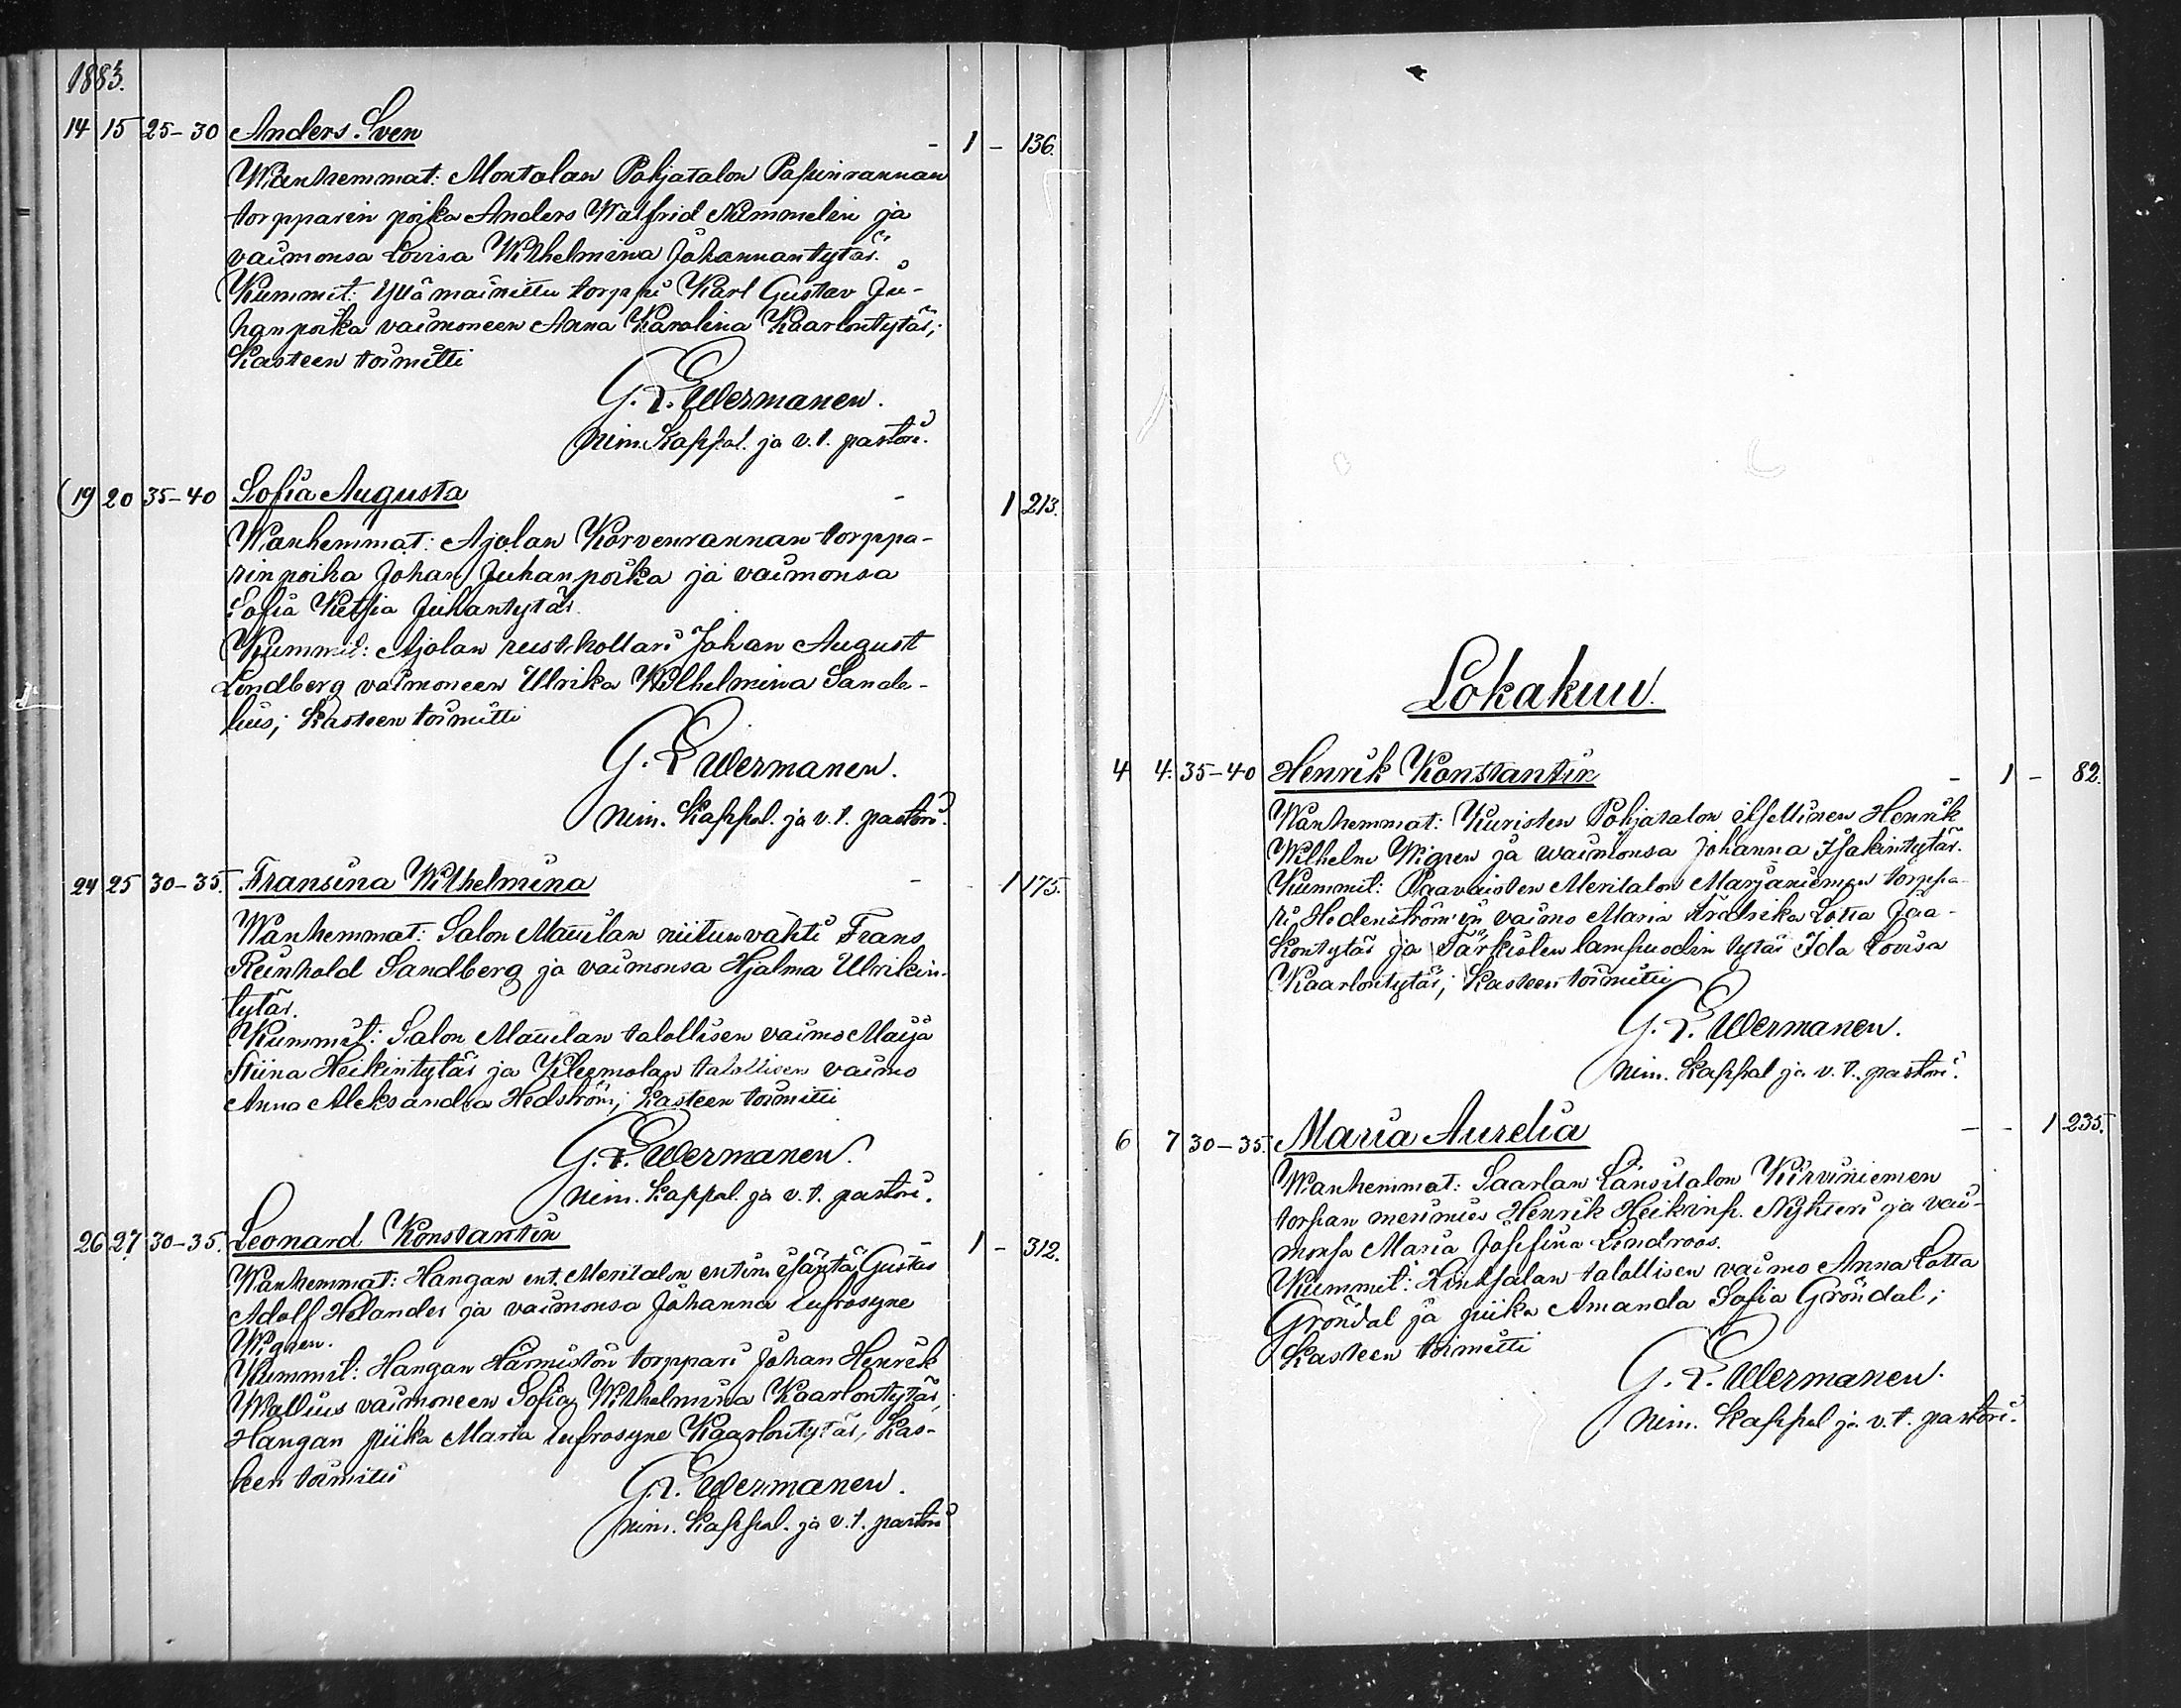 1883.
14 15 25-30 Anders Sven - 1 - 136.
Wanhemmat: Montolan Pohjatalon Papinrannan
torpparin poika Anders Walfrid Nummelin ja
vaimonsa Lovisa Wilhelmina Johannantytär.
Kummit: Yllä mainittu torppari Karl Gustav Ju-
hanpoika vaimoneen Anna Karolina Kaarlontytär;
kasteen toimitti
G. E. Wermanen.
nim. Kappal. ja v. t. pastori.
19 20 35-40 Sofia Augusta - 1 213.
Wanhemmat: Ajolan Korvenrannan torppa-
rin poika Johan Juhanpoika ja vaimonsa
Sofia Ketsia Juhantytär.
Kummit: Ajolan rusthollari Johan August
Lindberg vaimoneen Ulrika Wilhelmina Sande-
lius; kasteen toimitti
G. E. Wermanen.
nim. Kappal. ja v. t. pastori.
24 25 30-35. Fransina Wilhelmina - - 1 175.
Wanhemmat: Salon Maunulan niitunvahti Frans
Reinhold Sandberg ja vaimonsa Hjalma Ulrikin-
tytär.
Kummit: Salon talollisen vaimo Maija
Stiina Heikintytär ja talollisen vaimo
Anna Aleksandra Hedström; kasteen toimitti
G. E. Wermanen.
nim. Kappal. ja v. t. pastori.
26 27 30-35. Leonard Konstantin - 1 - 312.
Wanhemmat: Hangan ent. Meritalon entinen isäntä Gustav
Adolf Helander ja vaimonsa Johanna Eufrosyne
Wigren.
Kummit: Hangan Härmistön torppari Johan Henrik
Wallius vaimoneen Sofia Wilhelmina Kaarlontytär,
Hangan piika Maria Eufrosyne Kaarlontytär; kas-
teen toimitti
G. E. Wermanen.
nim. Kappal. ja v. t. pastori
Lokakuu.
4 4. 35-40 Henrik Konstantin - 1 - 82.
Wanhemmat: Kuristen Pohjatalon itsellinen Henrik
Wilhelm Wigren ja waimonsa Johanna Isakintytär.
Kummit: Paavaisten Meritalon Marjaniemen torppa-
ri Hedenström'in vaimo Maria Fredrika Lotta Jaa-
kontytär ja lampuodin tytär Ida Lovisa
Kaarlontytär; kasteen toimitti
G. E. Wermanen.
nim. Kappal ja v. t. pastori.
6 7 30-35. Maria Aurelia - - 1 235.
Wanhemmat: Saarlan Länsitalon Kirviniemen
torpan merimies Henrik Heikinp. Nyhteri ja vai-
monsa Maria Josefina Lindroos.
Kummit: Hinksalan talollisen vaimo Anna Lotta
Gröndal ja piika Amanda Sofia Gröndal;
kasteen toimitti
G. E. Wermanen.
nim. Kappal ja v. t. pastori.